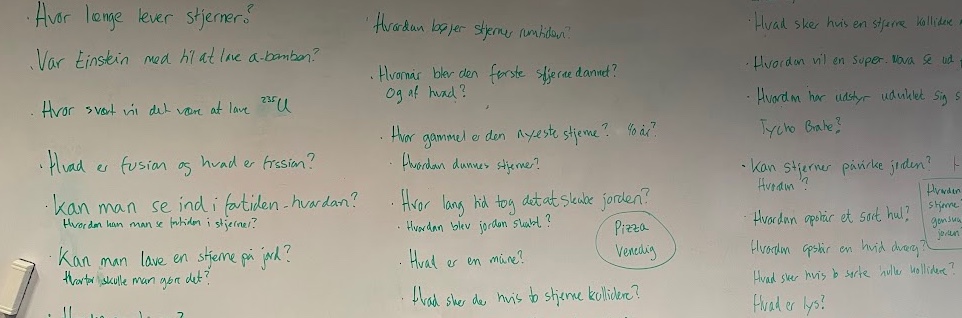 · Hvor længe lever stjerner?
· Var Einstein med til at lave a-bomben?
· Hvor svært vil det være at lave ²³⁵U
· Hvad er fusion og hvad er fission?
· Kan man se ind i fortiden - hvordan?
Hvordan kan man se fortiden i stjerner?
· Kan man lave en stjerne på jord?
Hvorfor skulle man gøre det?
· Hvordan bøjer stjerner rumtiden?
· Hvornår blev den første stjerne dannet?
Og af hvad?
· Hvor gammel er den nyeste stjerne? % år?
· Hvordan dannes stjerner?
· Hvor lang tid tog det at skabe jorden?
· Hvordan blev jorden skabt?
Pizza
Venedig
· Hvad er en måne?
· Hvad sker der hvis to stjerne kollidere?
· Hvad sker hvis en stjerne kollidere
· Hvordan vil en super-nova se ud
· Hvordan har udstyr udviklet sig s
Tycho Brahe?
· Kan stjerner påvirke jorden?
Hvordan?
Hvordan
stjerne
jorden?
· Hvordan opstår et sort hul?
· Hvordan opstår en hvid dværg?
Hvad sker hvis to sorte huller kollidere?
Hvad er lys?